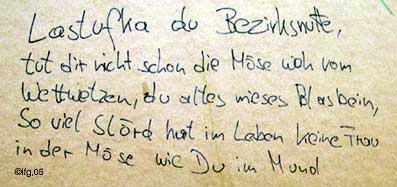 Lastufka du Bezirksnutte,
tut dir nicht schon die Möse weh vom
Wettwetzen, du altes mieses Blasbein,
So viel Slörd hat im Leben keine Frau
in der Möse wie Du im Mund
©lfg.05